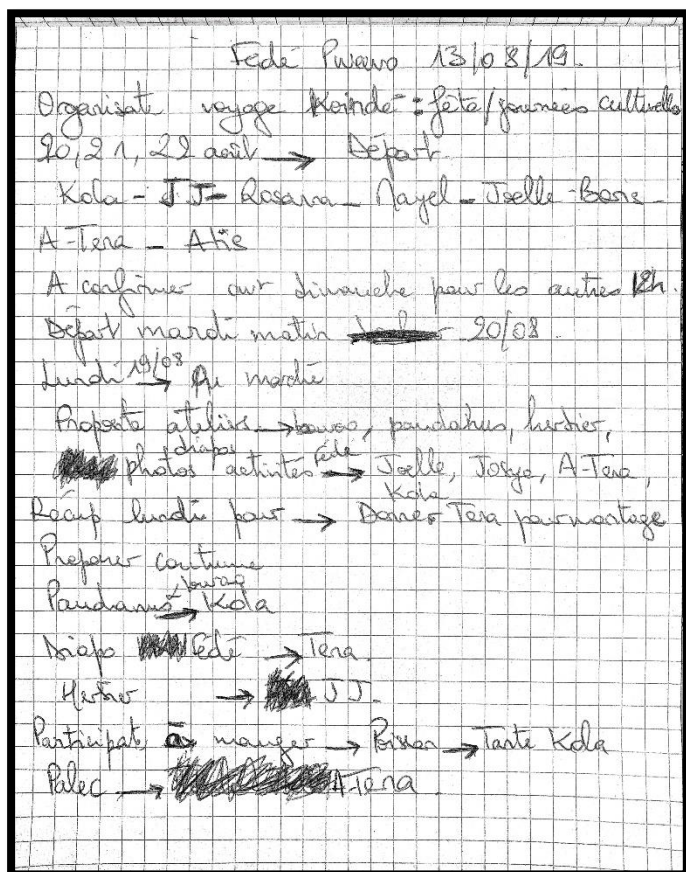 Fédé Pwavo 13/08/19.
Organisat° voyage Koindé : fête/journées culturelles
20, 21, 22 août → Départ
Kola - JJ - Rosana - Nayel - Joelle -
A-Tena - Atie
A confirmer dimanche pour les autres 12h.
Départ mardi matin 20/08
Lundi 19/08 → marché
Proposit° ateliers → bourao, pandanus, herbier,
photos diapos activités Fédé → Joelle, Josye, A-Tena,
Kola
Récup lundi pour → Donner Tena pour montage
Préparer coutume
Pandanus & bourao → Kola
Diapo Fédé → Tena.
Herbier → JJ.
Participat° à manger → Poisson → Tante Kola
→ A-Tena.